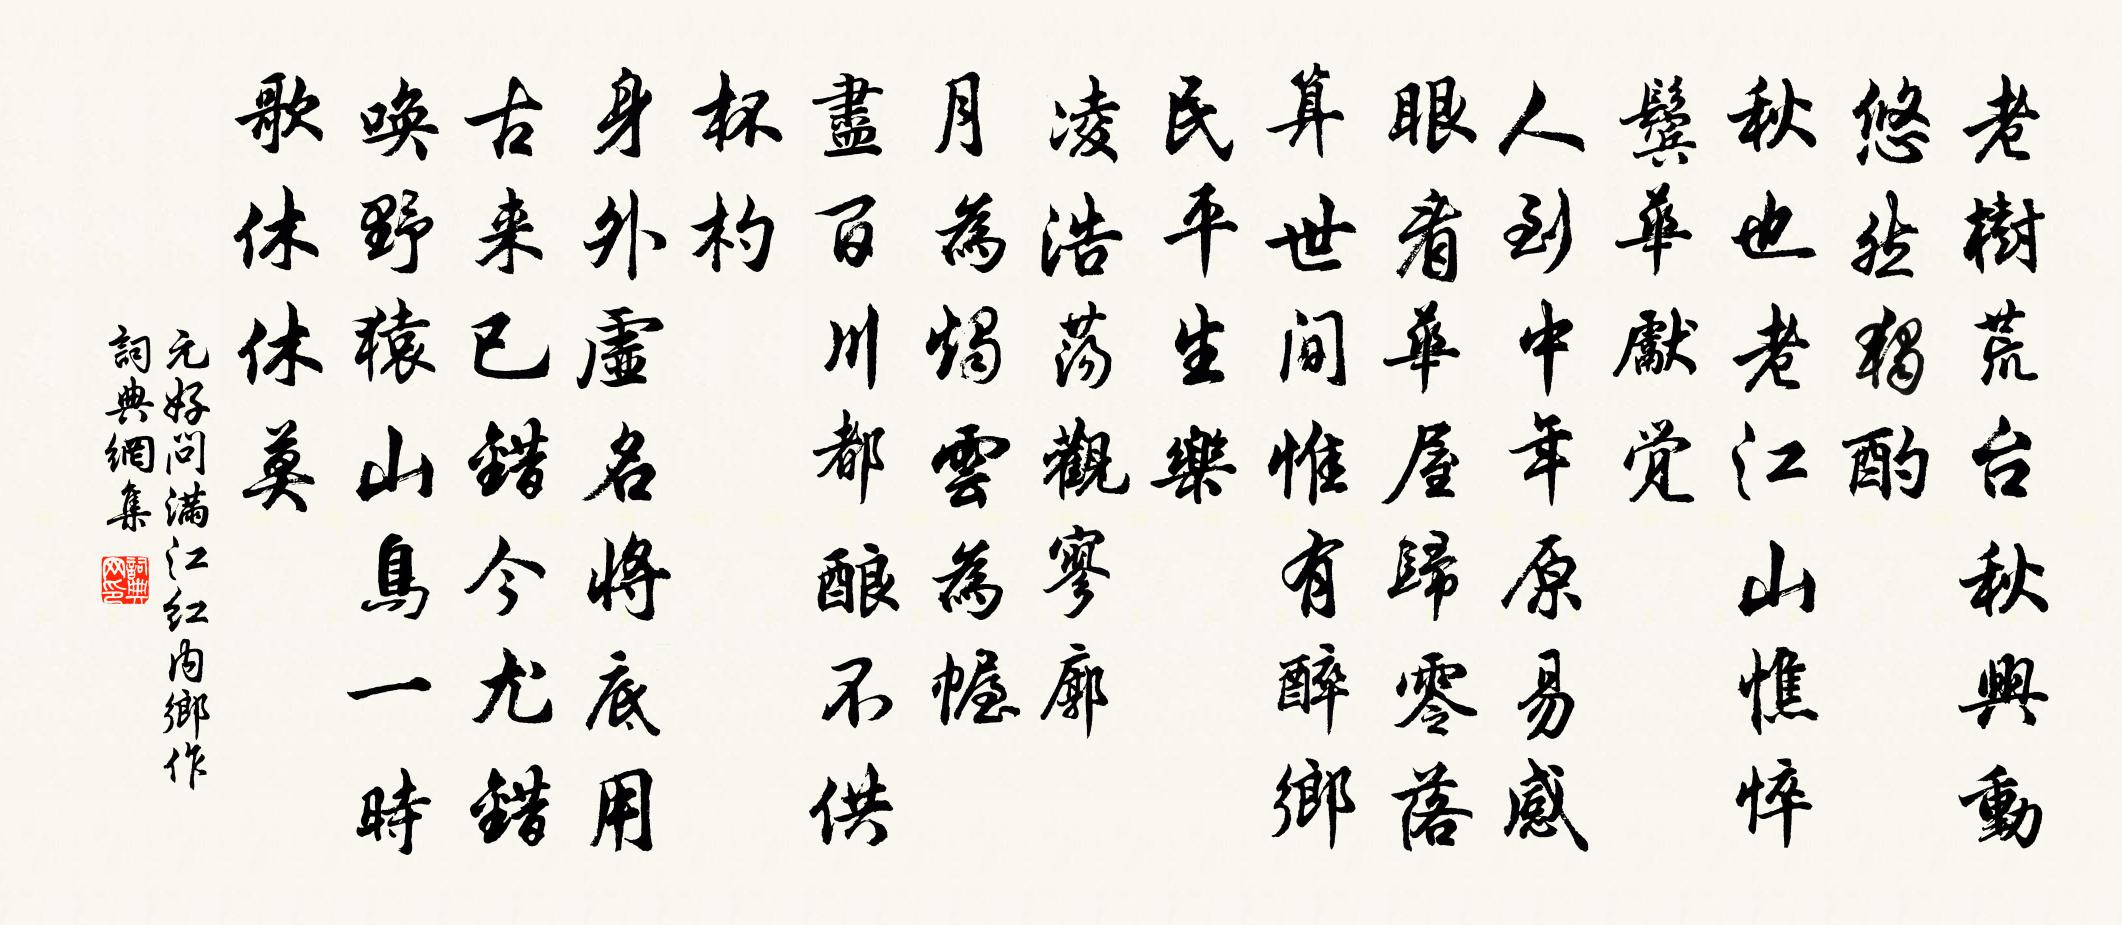 老樹荒台秋興動
悠然獨酌
秋也老江山憔悴
鬢華獻覚
人到中年原易感
眼看華屋歸零落
算世间惟有醉鄉
民平生樂
凌浩蕩觀寥廓
月為燭雲為幄
盡百川都酿不供
杯杓
身外虛名將底用
古来已錯今尤錯
喚野猿山鳥一時
歌休休莫
元好问满江红内鄉作
詞典網集
詞典网印